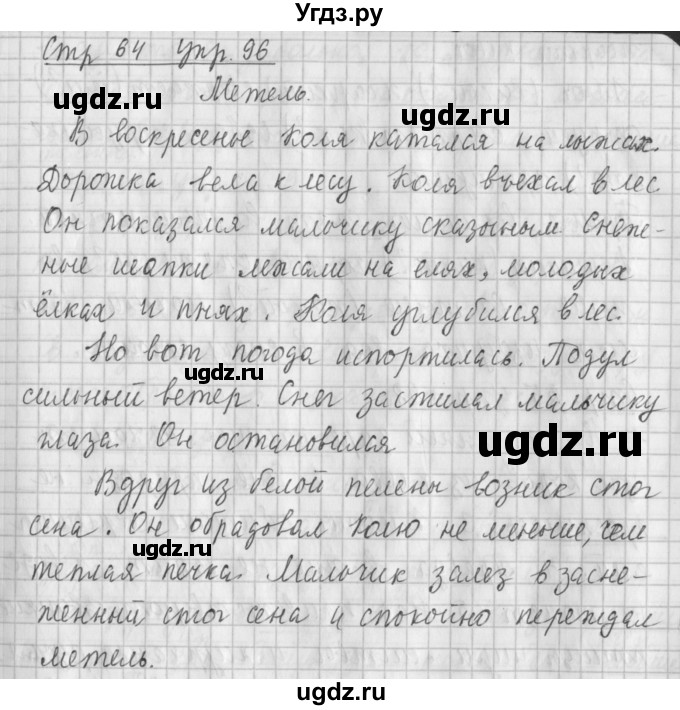 Угдз.ру
Стр 64 упр. 96
ugdz.ru
ugdz.ru
Метель.
В воскресенье Коля катался на лыжах.
Дорожка вела к лесу. Коля въехал в лес
Он показался мальчику сказочным. Снеж-
ные шапки лежали на елях, молодых
ёлках и пнях. Коля углубился в лес.
Но вот погода испортилась. Подул
ugdz.ru
сильный ветер. Снег застилал мальчику
глаза. Он остановился
ugdz.ru
Вдруг из белой пелены возник стог
сена. Он обрадовал Колю не меньше, чем
ugdz.ru
теплая печка. Мальчик залез в засне-
женный стог сена и спокойно переждал
метель.
ugdz.ru